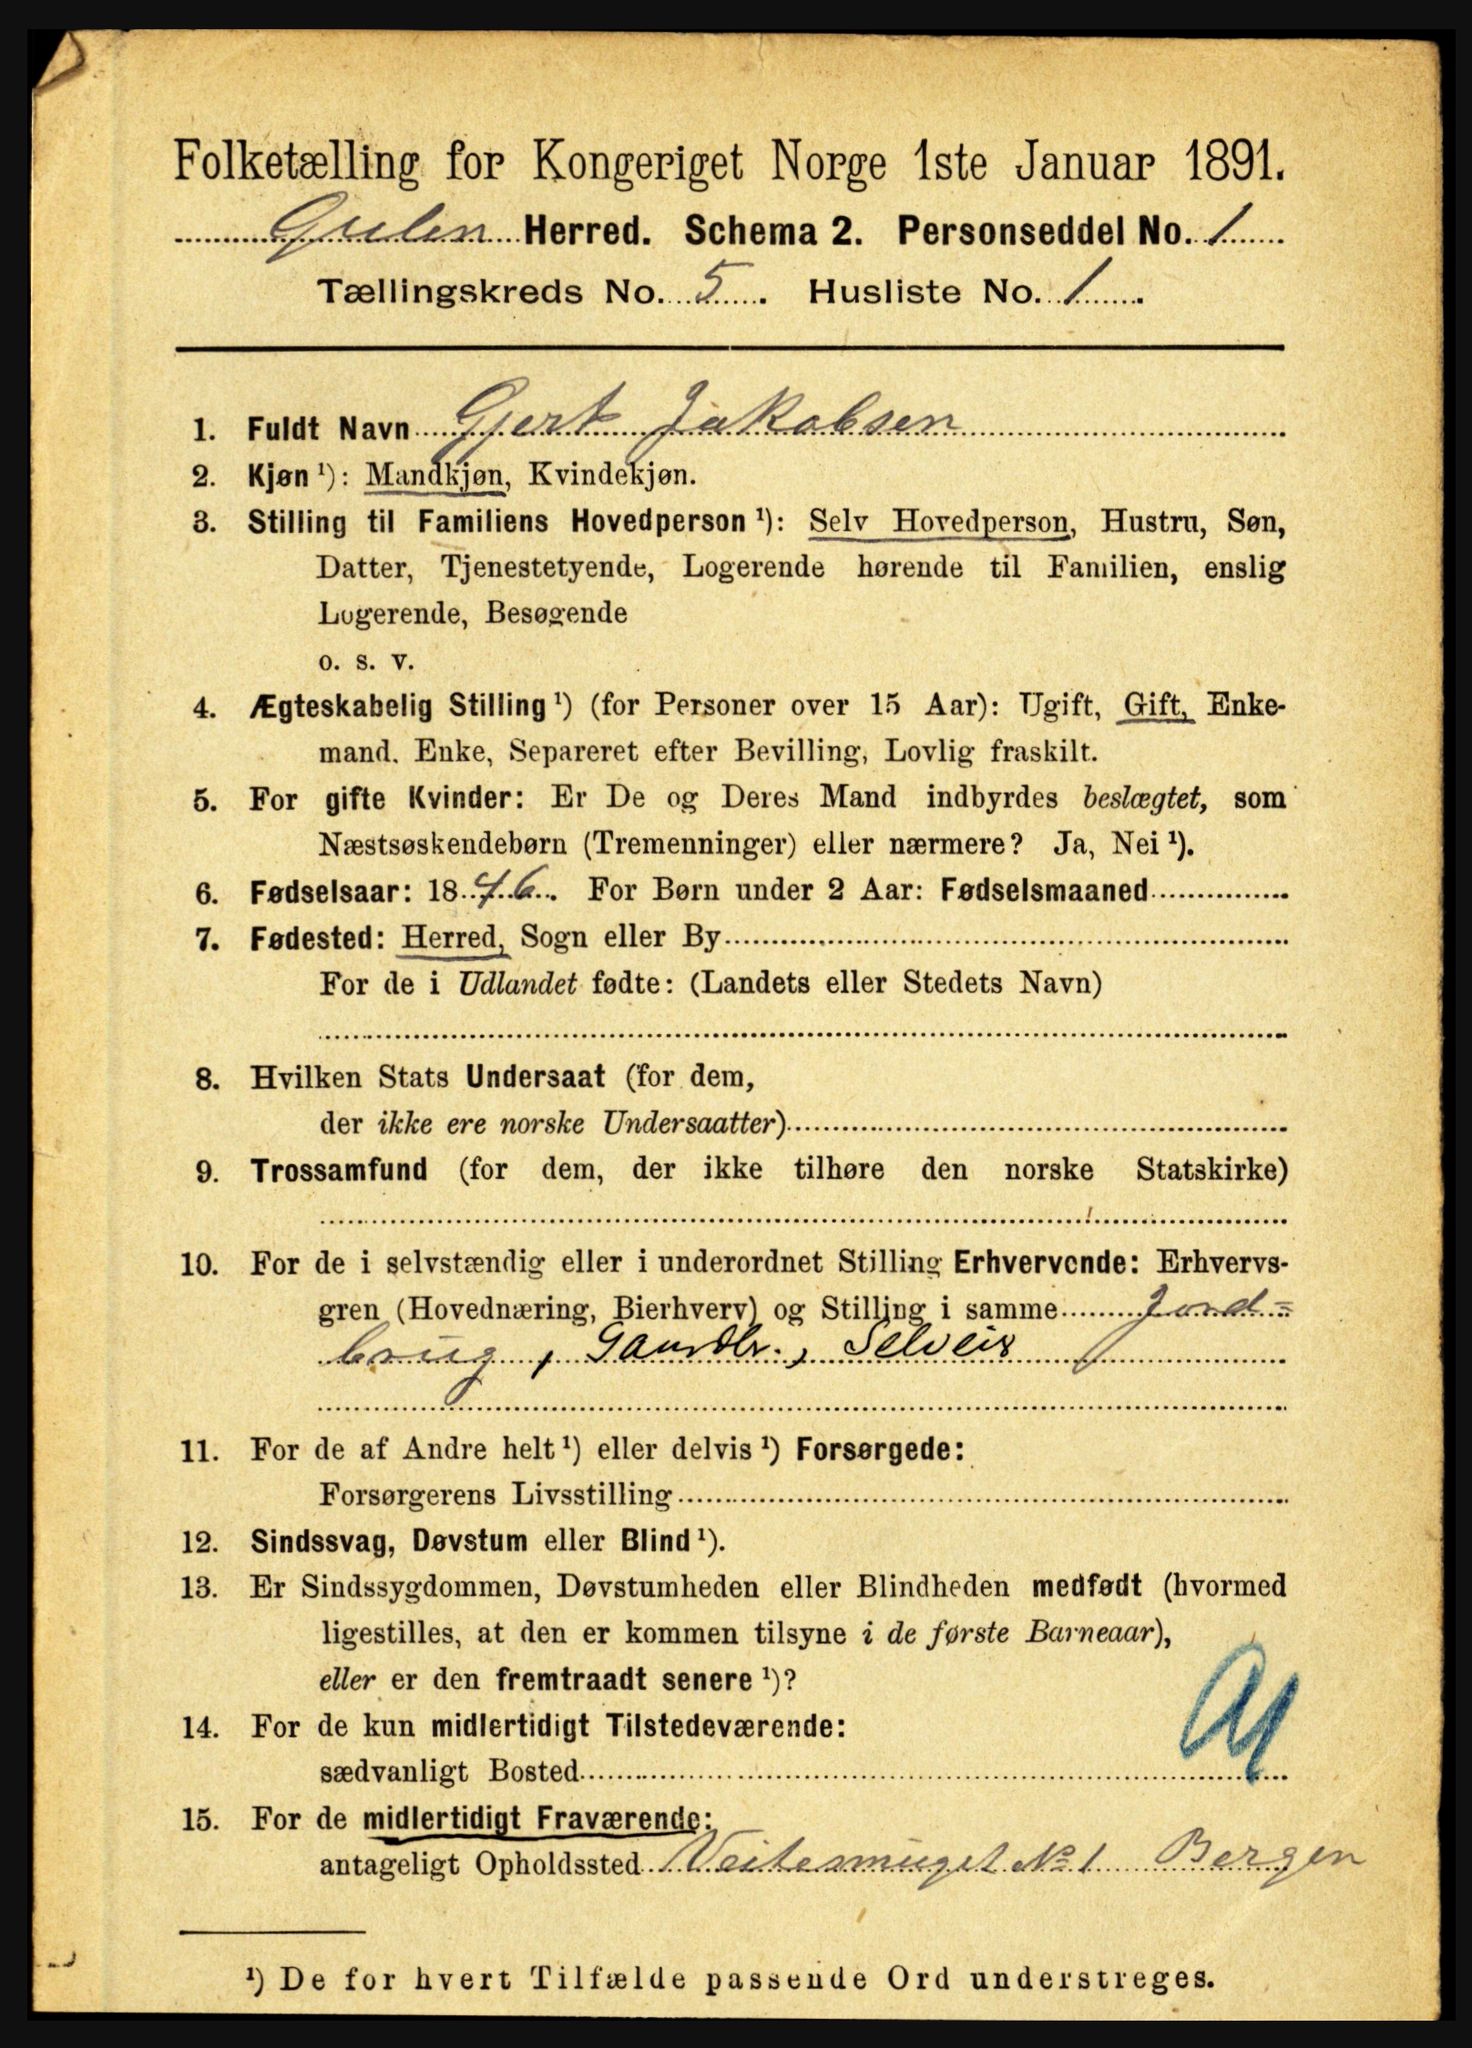 Folketælling for Kongeriget Norge 1ste Januar 1891.
Gulen Herred. Schema 2. Personseddel No. 1
Tællingskreds No. 5. Husliste No. 1.
1. Fuldt Navn Gjert Jakobsen
2. Kjøn ¹): Mandkjøn, Kvindekjøn.
3. Stilling til Familiens Hovedperson ¹): Selv Hovedperson, Hustru, Søn,
Datter, Tjenestetyende, Logerende hørende til Familien, enslig
Logerende, Besøgende
o. s. v.
4. Ægteskabelig Stilling ¹) (for Personer over 15 Aar): Ugift, Gift, Enke-
mand, Enke, Separeret efter Bevilling, Lovlig fraskilt.
5. For gifte Kvinder: Er De og Deres Mand indbyrdes beslægtet, som
Næstsøskendebørn (Tremenninger) eller nærmere? Ja, Nei ¹).
6. Fødselsaar: 1846. For Børn under 2 Aar: Fødselsmaaned
7. Fødested: Herred, Sogn eller By
For de i Udlandet fødte: (Landets eller Stedets Navn)
8. Hvilken Stats Undersaat (for dem,
der ikke ere norske Undersaatter)
9. Trossamfund (for dem, der ikke tilhøre den norske Statskirke)
10. For de i selvstændig eller i underordnet Stilling Erhvervende: Erhvervs-
gren (Hovednæring, Bierhverv) og Stilling i samme Jord=
brug, Gaardbr., Selveier
11. For de af Andre helt ¹) eller delvis ¹) Forsørgede:
Forsørgerens Livsstilling
12. Sindssvag, Døvstum eller Blind ¹).
13. Er Sindssygdommen, Døvstumheden eller Blindheden medfødt (hvormed
ligestilles, at den er kommen tilsyne i de første Barneaar),
eller er den fremtraadt senere ¹)?
14. For de kun midlertidigt Tilstedeværende:
sædvanligt Bosted
15. For de midlertidigt Fraværende:
antageligt Opholdssted No 1 Bergen
¹) De for hvert Tilfælde passende Ord understreges.